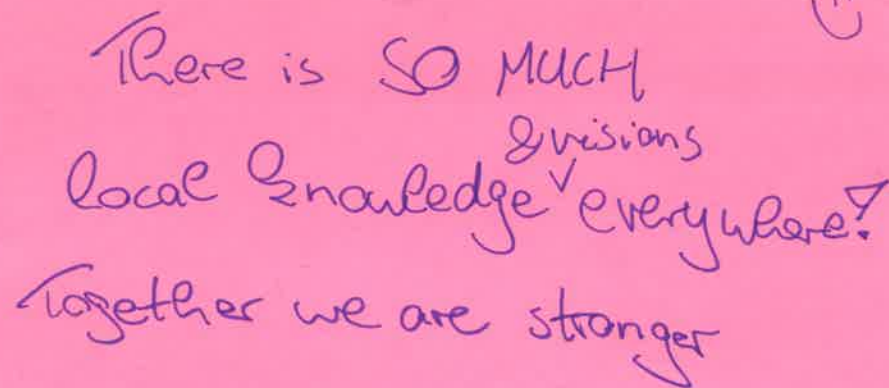 There is SO MUCH
local knowledge & visions everywhere!
Together we are stronger